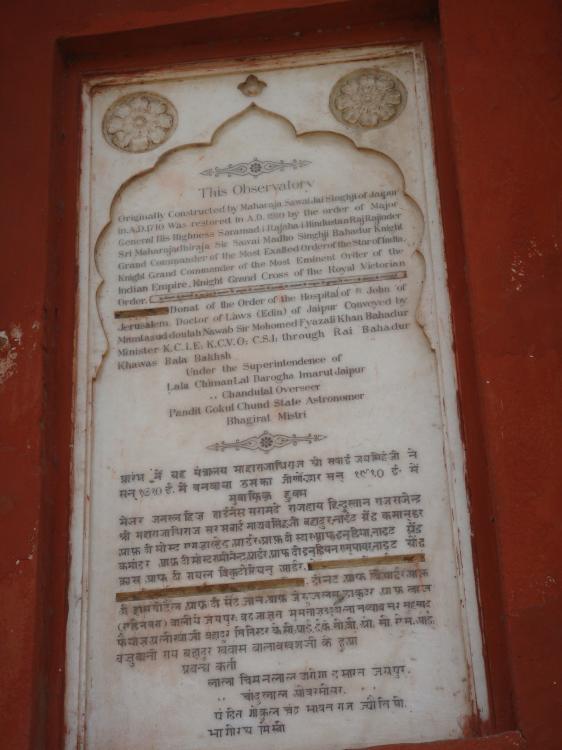 This Observatory
Originally Constructed by Maharaja Sawai Jai Singhji of Jaipur
in A.D. 1710 Was restored in A.D. 1910 by the order of Major
General His Highness Saramad-i-Rajaha-i-Hindustan Raj Rajinder
Sri Maharajadhiraja Sir Sawai Madho Singhji Bahadur Knight
Grand Commander of the Most Exalted Order of the Star of India,
Knight Grand Commander of the Most Eminent Order of the
Indian Empire, Knight Grand Cross of the Royal Victorian
Order,
Donat of the Order of the Hospital of St John of
Jerusalem, Doctor of Laws (Edin) of Jaipur Conveyed by
Mumtasud doulah Nawab Sir Mohomed Fyazali Khan Bahadur
Minister K.C.I.E; K.C.V.O; C.S.I; through Rai Bahadur
Khawas Bala Bakhsh
Under the Superintendence of
Lala Chiman Lal Darogha Imarut Jaipur
,, Chandulal Overseer
Pandit Gokul Chund State Astronomer
Bhagirat Mistri
प्रारंभ में यह यंत्रालय माहाराजाधिराज श्री सवाई जयसिंहजी ने
सन् १७१० ई॰ में बनवाया उसका जीर्णोद्धार सन् १९१० ई॰ में
मुवाफ़िक़ हुक्म
मेजर जनरल हिज़ हाईनेस सरामदे राजहाय हिन्दुस्तान राजराजेन्द्र
श्री महाराजाधिराज सर सवाई माधवसिंहजी बहादुर, नाईट ग्रेंड कमान्डर
आफ़ दी मोस्ट एग्ज़ाल्टेड आर्डर आफ़ दी स्टार आफ़ इन्डिया, नाइट ग्रेंड
कमांडर आफ़ दी मोस्ट एमीनेन्ट आर्डर आफ़ दी इन्डियन एम्पायर, नाइट ग्रेंड
क्रास आफ़ दी रायल विक्टोरियन आर्डर,
डोनेट आफ़ दी आर्डर आफ़
दी हासपीटेल आफ़ दी सेंट जान आफ़ जेरुजलम, डाक्टर आफ़ लाज़
वज़ुबानी राय बहादुर खवास बालाबख़्शजी के हुआ
प्रबन्ध कर्ता
लाला चिमनलाल दारोगा इमारत जयपुर.
,, चांदूलाल ओवरसीयर.
पंडित गोकुल चंद्र भावन राज ज्योतिषी.
भागीरथ मिस्त्री